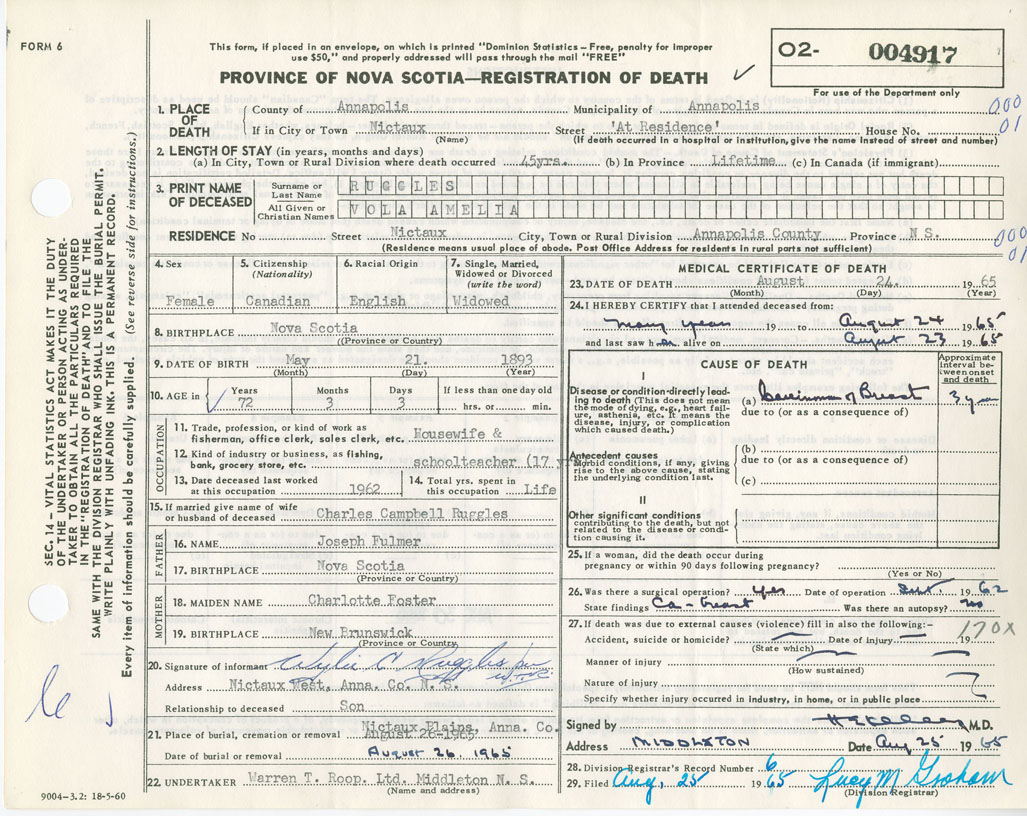 FORM 6
This form, if placed in an envelope, on which is printed "Dominion Statistics – Free, penalty for improper
use $50," and properly addressed will pass through the mail "FREE"
PROVINCE OF NOVA SCOTIA—REGISTRATION OF DEATH ✓
O2- 004917
For use of the Department only
1. PLACE OF DEATH { County of Annapolis Municipality of Annapolis 000
If in City or Town Nictaux (Name) Street 'At Residence' House No. 01
(If death occurred in a hospital or institution, give the name instead of street and number)
2. LENGTH OF STAY (in years, months and days)
(a) In City, Town or Rural Division where death occurred 45yrs. (b) In Province Lifetime (c) In Canada (if immigrant)
3. PRINT NAME OF DECEASED { Surname or Last Name RUGGLES
All Given or Christian Names VOLA AMELIA
RESIDENCE No Street Nictaux City, Town or Rural Division Annapolis County Province N S. 000
(Residence means usual place of abode. Post Office Address for residents in rural parts not sufficient) 01
4. Sex Female
5. Citizenship (Nationality) Canadian
6. Racial Origin English
7. Single, Married, Widowed or Divorced (write the word) Widowed
8. BIRTHPLACE Nova Scotia
((Province or Country)
9. DATE OF BIRTH May 21. 1893
(Month) (Day) (Year)
10. AGE in { Years 72 Months 3 Days 3 If less than one day old hrs. or min.
OCCUPATION
11. Trade, profession, or kind of work as fisherman, office clerk, sales clerk, etc. Housewife &
12. Kind of industry or business, as fishing, bank, grocery store, etc. schoolteacher (17 yrs
13. Date deceased last worked at this occupation 1962
14. Total yrs. spent in this occupation Life
15. If married give name of wife or husband of deceased Charles Campbell Ruggles
FATHER
16. NAME Joseph Fulmer
17. BIRTHPLACE Nova Scotia
(Province or Country)
MOTHER
18. MAIDEN NAME Charlotte Foster
19. BIRTHPLACE New Brunswick
(Province or Country)
20. Signature of informant C Ruggles
Address Nictaux West, Anna. Co. N. S.
Relationship to deceased Son
21. Place of burial, cremation or removal Nictaux Plains, Anna. Co.
August 26-1965
Date of burial or removal August 26, 1965
22. UNDERTAKER Warren T. Roop. Ltd. Middleton N. S.
(Name and address)
MEDICAL CERTIFICATE OF DEATH
23. DATE OF DEATH August 24. 1965
(Month) (Day) (Year)
24. I HEREBY CERTIFY that I attended deceased from:
many years 19 to August 24 1965
and last saw her alive on August 23 1965
CAUSE OF DEATH
Approximate interval between onset and death
I
Disease or condition directly leading to death (This does not mean the mode of dying, e.g., heart failure, asthenia, etc. It means the disease, injury, or complication which caused death.)
(a) Carcinoma of Breast 3 years
due to (or as a consequence of)
Antecedent causes
Morbid conditions, if any, giving rise to the above cause, stating the underlying condition last.
(b)
due to (or as a consequence of)
(c)
II
Other significant conditions
contributing to the death, but not related to the disease or condition causing it.
25. If a woman, did the death occur during
pregnancy or within 90 days following pregnancy?
(Yes or No)
26. Was there a surgical operation? Yes Date of operation Sept. 1962
State findings Ca-breast Was there an autopsy? no
27. If death was due to external causes (violence) fill in also the following:–
Accident, suicide or homicide? Date of injury 19 170X
(State which)
Manner of injury
(How sustained)
Nature of injury
Specify whether injury occurred in industry, in home, or in public place
Signed by M.D.
Address MIDDLETON Date Aug 25 1965
28. Division Registrar's Record Number 6
29. Filed Aug, 25 1965 Lucy M Graham
(Division Registrar)
SEC. 14 – VITAL STATISTICS ACT MAKES IT THE DUTY
OF THE UNDERTAKER OR PERSON ACTING AS UNDER-
TAKER TO OBTAIN ALL THE PARTICULARS REQUIRED
IN THE "REGISTRATION OF DEATH" AND TO FILE THE
SAME WITH THE DIVISION REGISTRAR WHO SHALL ISSUE THE BURIAL PERMIT.
WRITE PLAINLY WITH UNFADING INK. THIS IS A PERMANENT RECORD.
Every item of information should be carefully supplied. (See reverse side for instructions.)
9004-3.2: 18-5-60